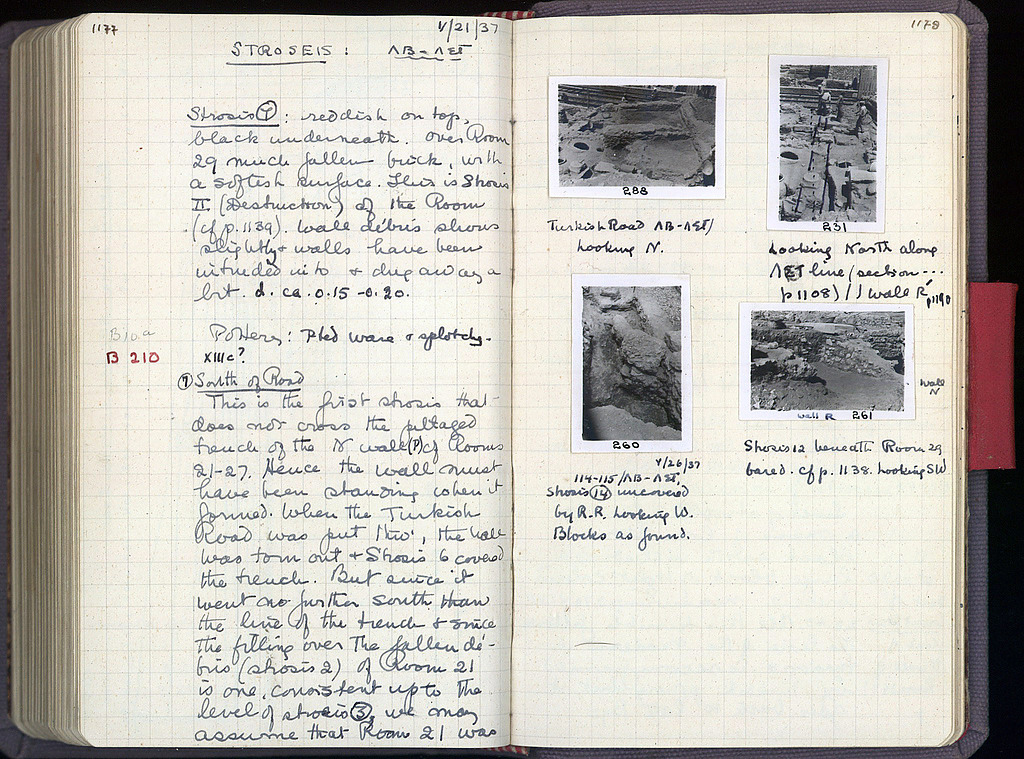 1177
4/21/37
STROSEIS : ΛΒ-ΛΣΤ
Strosis 7 : reddish on top,
black underneath. Over Room
29 much fallen brick, with
a softish surface. This is Strosis
II (Destruction) of the Room
(cf p. 1139). Wall débris shows
slightly & walls have been
intruded into & dug away a
bit. d. ca. 0.15 - 0.20.
B 10a
B 210
Pottery: Pted ware & splotchy.
XIIIc?
7 South of Road
This is the first strosis that
does not cross the pillaged
trench of the N wall (P) of Rooms
21-27. Hence the wall must
have been standing when it
formed. When the Turkish
Road was put thro', the wall
was torn out & Strosis 6 covered
the trench. But since it
went no further south than
the line of the trench & since
the filling over the fallen dé-
bris (strosis 2) of Room 21
is one, consistent up to the
level of strosis 3, we may
assume that Room 21 was
1178
288
Turkish Road ΛΒ-ΛΣΤ/
Looking N.
231
Looking North along
ΛΣΤ line (section...
p 1108) // wall R
p1190
260
4/26/37
114-115/ΛΒ-ΛΣΤ,
Strosis 14 uncovered
by R.R. Looking W.
Blocks as found.
wall R 261
wall
N
Strosis 12 beneath Room 29
bared. cf p. 1138. Looking SW